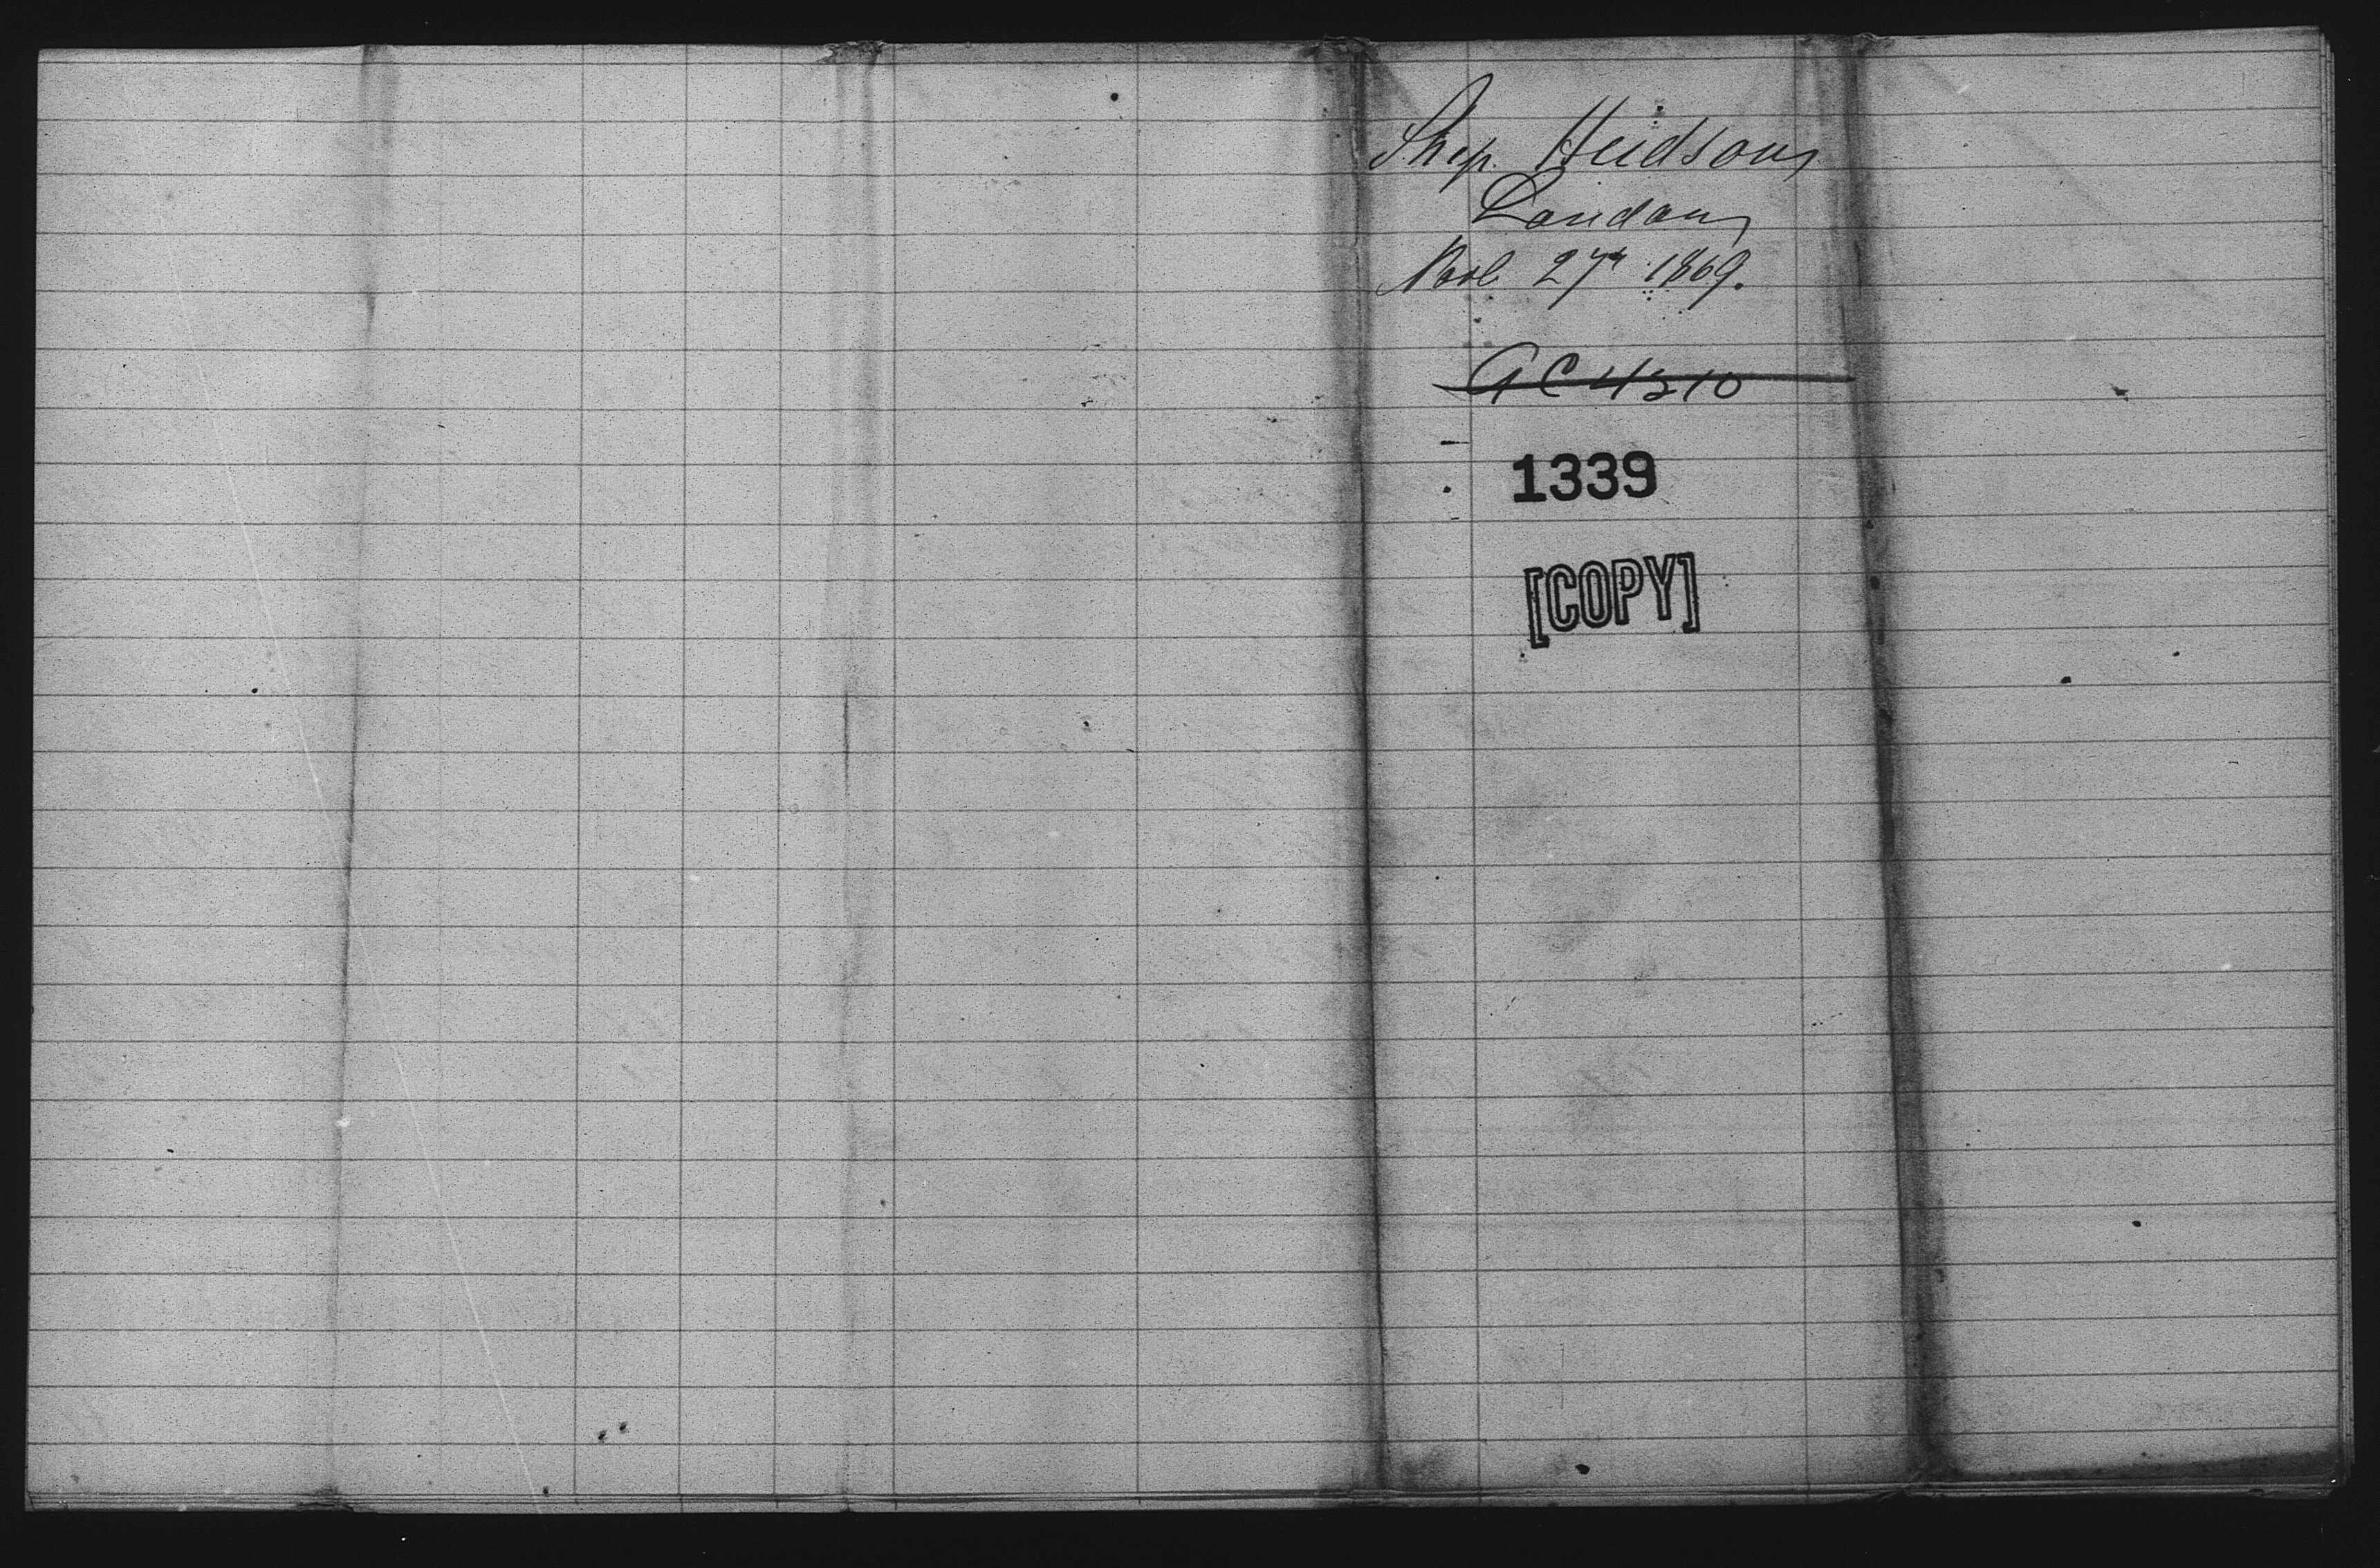 Ship Hudson
London
Nov 27th 1869.
GC 4310
1339
[COPY]